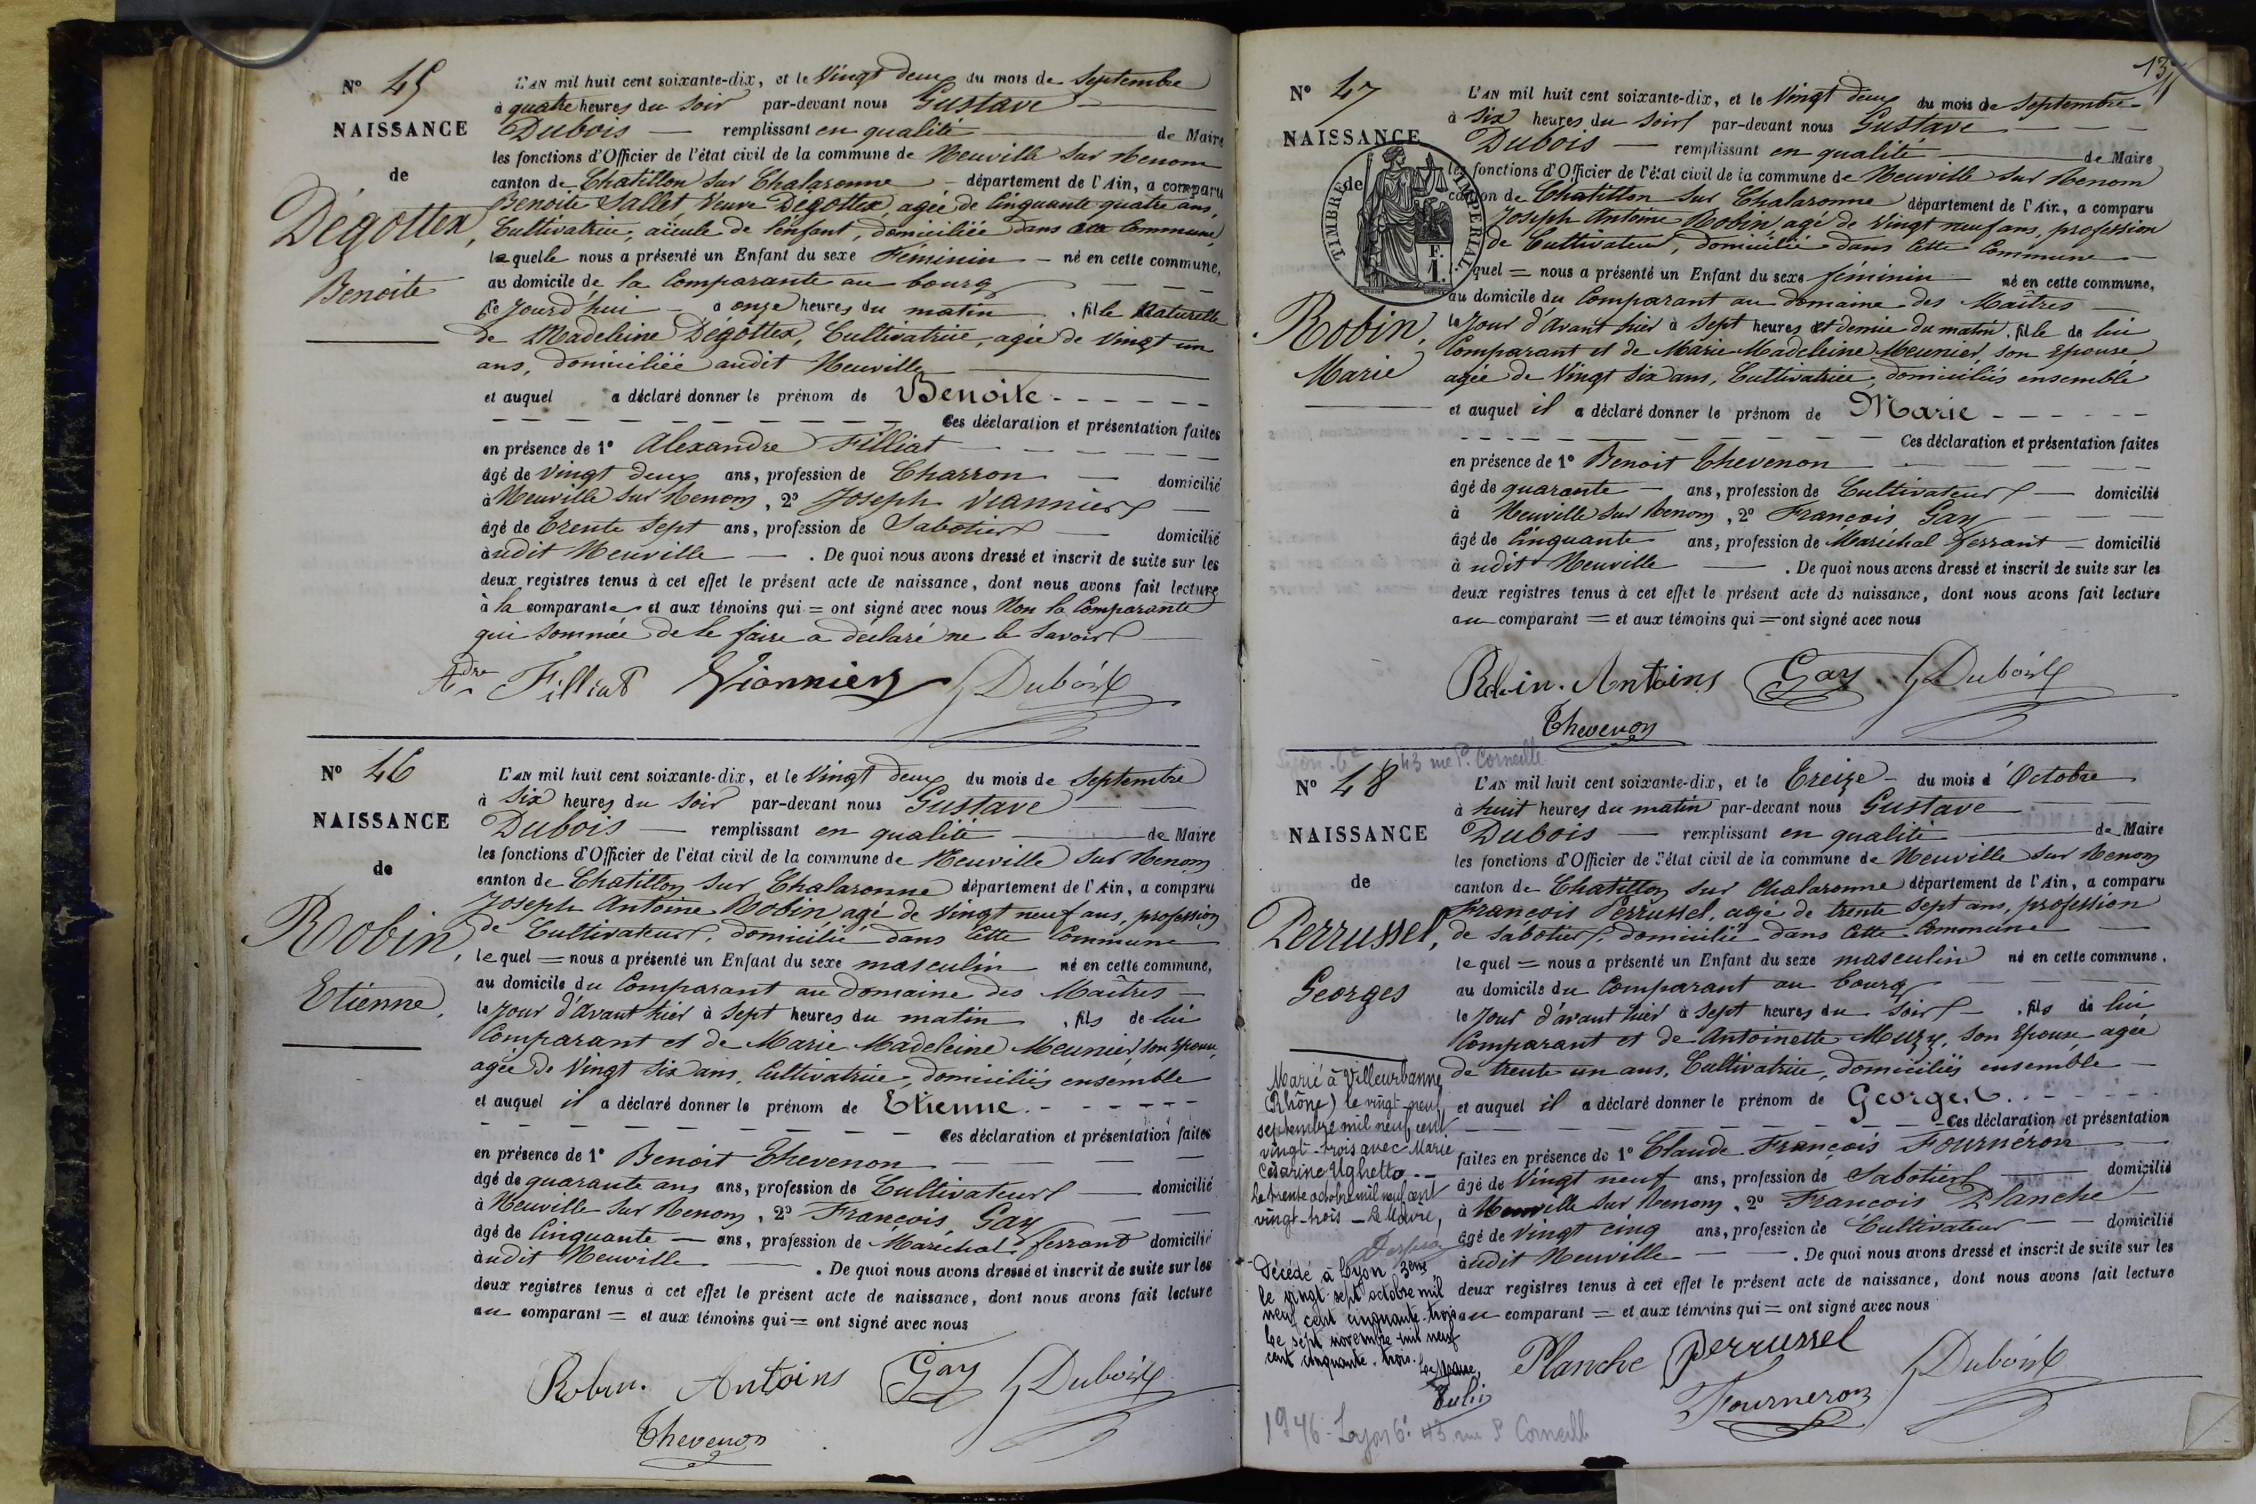 Nº 45
NAISSANCE
de
Dégottex,
Benoite
L'AN mil huit cent soixante-dix, et le Vingt deux du mois de Septembre
à quatre heures du Soir par-devant nous Gustave
Dubois remplissant en qualité de Maire
les fonctions d'Officier de l'état civil de la commune de Neuville sur Renom
canton de Chatillon sur Chalaronne département de l'Ain, a comparu
Benoite Sallet Veuve Dégottex, agée de Cinquante quatre ans,
Cultivatrice, aieule de l'enfant, domiciliée dans cette Commune,
laquelle nous a présenté un Enfant du sexe Féminin né en cette commune,
au domicile de la Comparante au bourg
ce Jourd'hui à onze heures du matin, fille Naturelle
de Madeleine Dégottex, Cultivatrice, agée de Vingt un
ans, domiciliée audit Neuville
et auquel a déclaré donner le prénom de Benoite
Ces déclaration et présentation faites
en présence de 1º Alexandre Filliat
âgé de Vingt deux ans, profession de Charron domicilié
à Neuville sur Renom, 2º Joseph Viannier
âgé de Trente Sept ans, profession de Sabotier domicilié
audit Neuville. De quoi nous avons dressé et inscrit de suite sur les
deux registres tenus à cet effet le présent acte de naissance, dont nous avons fait lecture
à la comparante et aux témoins qui = ont signé avec nous Non la Comparante
qui Sommée de le faire a déclaré ne le Savoir
Adre Filliat Vionnier G Dubois
Nº 46
NAISSANCE
de
Robin,
Etienne,
L'AN mil huit cent soixante-dix, et le Vingt deux du mois de Septembre
à Six heures du Soir par-devant nous Gustave
Dubois remplissant en qualité de Maire
les fonctions d'Officier de l'état civil de la commune de Neuville sur Renom
canton de Chatillon sur Chalaronne département de l'Ain, a comparu
Joseph Antoine Robin agé de Vingt neuf ans, profession
de Cultivateur, domicilié dans Cette Commune
lequel = nous a présenté un Enfant du sexe masculin né en cette commune,
au domicile du Comparant au Domaine des Maîtres
le Jour d'avant hier à Sept heures du matin, fils de lui
Comparant et de Marie Madeleine Meunier, son Epouse,
agée de Vingt Six ans, Cultivatrice, domiciliés ensemble
et auquel il a déclaré donner le prénom de Etienne.
Ces déclaration et présentation faites
en présence de 1º Benoit Thevenon
âgé de quarante ans ans, profession de Cultivateur domicilié
à Neuville sur Renom, 2º François Gay
âgé de Cinquante ans, profession de Maréchal ferrant domicilié
audit Neuville. De quoi nous avons dressé et inscrit de suite sur les
deux registres tenus à cet effet le présent acte de naissance, dont nous avons fait lecture
au comparant = et aux témoins qui = ont signé avec nous
Robin. Antoins Gay G Dubois
Thevenon
137
Nº 47
NAISSANCE
de
TIMBRE IMPERIAL
1 F.
Robin,
Marie
L'AN mil huit cent soixante-dix, et le Vingt deux du mois de Septembre
à Six heures du Soir par-devant nous Gustave
Dubois remplissant en qualité de Maire
les fonctions d'Officier de l'état civil de la commune de Neuville sur Renom
canton de Chatillon sur Chalaronne département de l'Ain, a comparu
Joseph Antoine Robin, agé de Vingt neuf ans, profession
de Cultivateur, domicilié dans Cette Commune
quel = nous a présenté un Enfant du sexe féminin né en cette commune,
au domicile du Comparant au domaine des Maîtres
le Jour d'avant hier à Sept heures et demie du matin, fille de lui
Comparant et de Marie Madeleine Meunier, son Epouse,
agée de Vingt Six ans, Cultivatrice, domiciliés ensemble
et auquel il a déclaré donner le prénom de Marie
Ces déclaration et présentation faites
en présence de 1º Benoit Thevenon
âgé de quarante ans, profession de Cultivateur domicilié
à Neuville sur Renom, 2º François Gay
âgé de Cinquante ans, profession de Maréchal ferrant domicilié
à udit Neuville. De quoi nous avons dressé et inscrit de suite sur les
deux registres tenus à cet effet le présent acte de naissance, dont nous avons fait lecture
au comparant = et aux témoins qui = ont signé avec nous
Robin. Antoins Gay G Dubois
Thevenon
Lyon. 6e 43 rue P. Corneille
Nº 48
NAISSANCE
de
Perrussel,
Georges
L'AN mil huit cent soixante-dix, et le Treize du mois d'Octobre
à huit heures du matin par-devant nous Gustave
Dubois remplissant en qualité de Maire
les fonctions d'Officier de l'état civil de la commune de Neuville sur Renom
canton de Chatillon sur Chalaronne département de l'Ain, a comparu
François Perrussel, agé de trente Sept ans, profession
de Sabotier, domicilié dans Cette Commune
lequel = nous a présenté un Enfant du sexe masculin né en cette commune,
au domicile du Comparant au bourg
le Jour d'avant hier à Sept heures du Soir, fils de lui
Comparant et de Antoinette Muzy, son Epouse agée
de trente un ans, Cultivatrice, domiciliés ensemble
et auquel il a déclaré donner le prénom de Georges.
Ces déclaration et présentation
faites en présence de 1º Claude François Fourneron
âgé de Vingt neuf ans, profession de Sabotier domicilié
à Neuville sur Renom, 2º François Planche
âgé de Vingt cinq ans, profession de Cultivateur domicilié
audit Neuville. De quoi nous avons dressé et inscrit de suite sur les
deux registres tenus à cet effet le présent acte de naissance, dont nous avons fait lecture
au comparant = et aux témoins qui = ont signé avec nous
Planche Perrussel G Dubois
Fourneron
Marié à Villeurbanne
(Rhône) le vingt-neuf
septembre mil neuf cent
vingt-trois avec Marie
Césarine Ughetto.
Le trente octobre mil neuf cent
vingt-trois - Le Maire,
Décédé à Lyon 3ème
le vingt sept octobre mil
neuf cent cinquante-trois
Le sept novembre mil neuf
cent cinquante-trois.
Le Maire,
1946 - Lyon 6e 43 rue P. Corneille